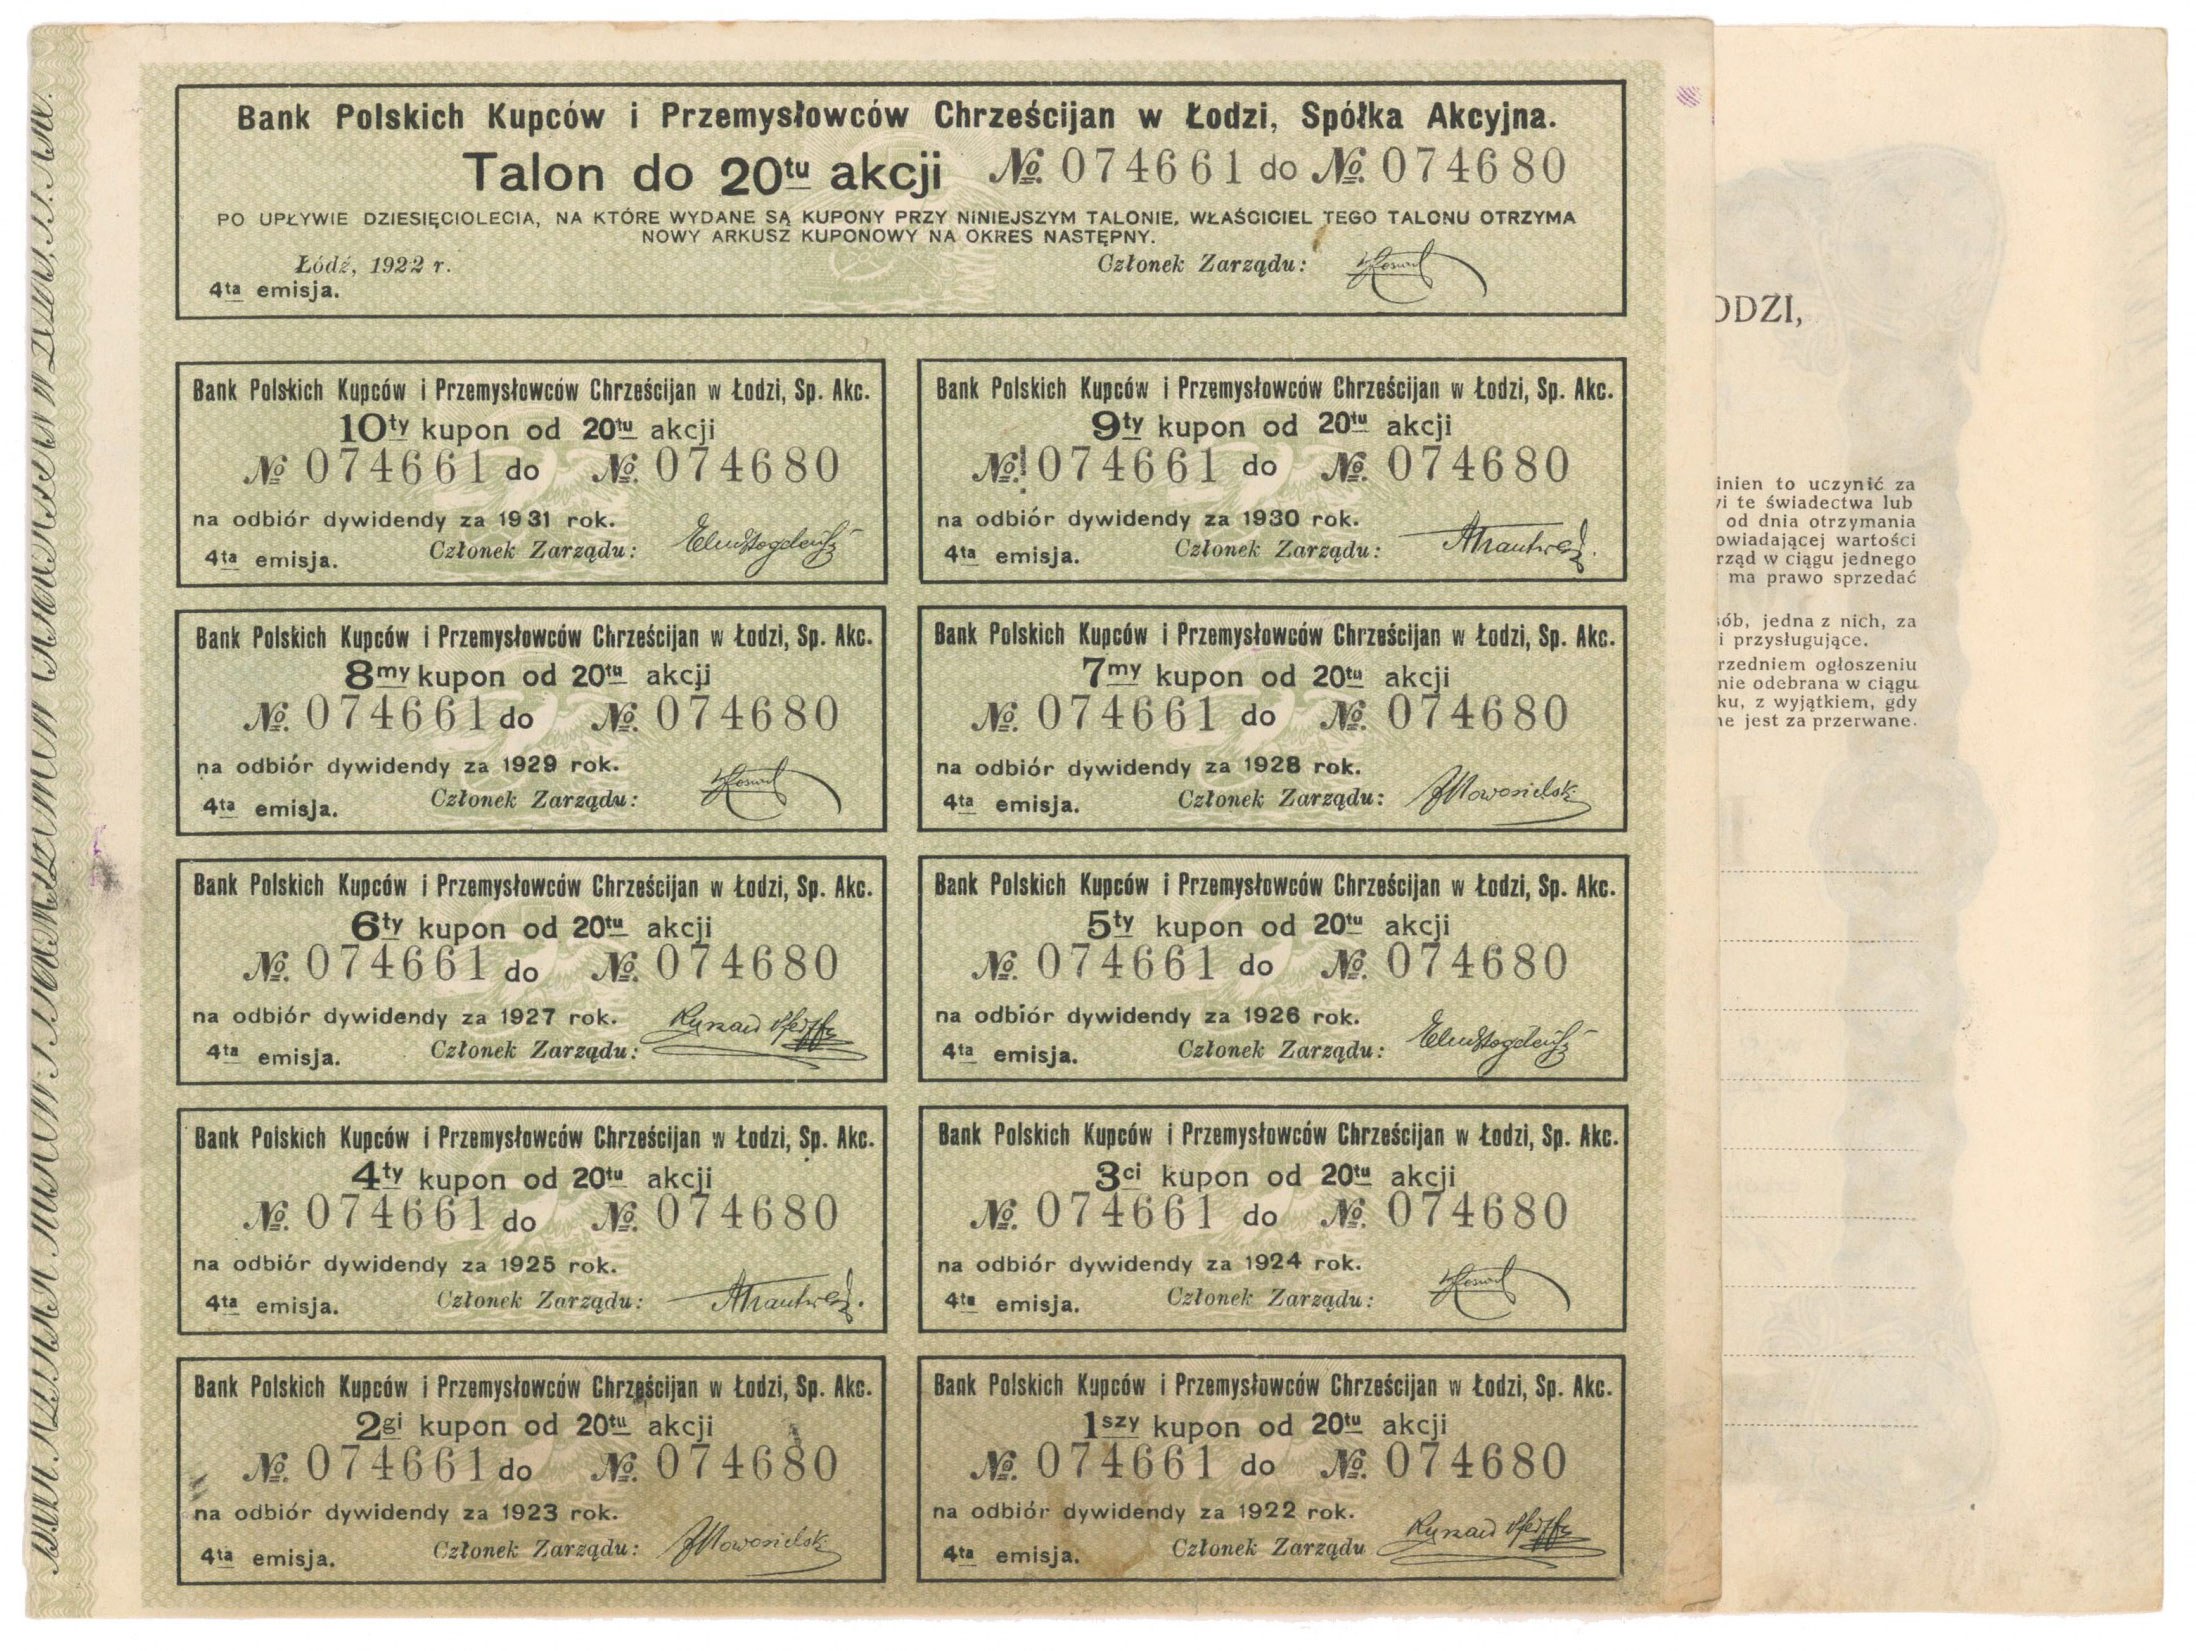 Bank Polskich Kupców i Przemysłowców Chrześcijan w Łodzi, Spółka Akcyjna.
Talon do 20tu akcji № 074661 do № 074680
PO UPŁYWIE DZIESIĘCIOLECIA, NA KTÓRE WYDANE SĄ KUPONY PRZY NINIEJSZYM TALONIE, WŁAŚCICIEL TEGO TALONU OTRZYMA
NOWY ARKUSZ KUPONOWY NA OKRES NASTĘPNY.
Łódź, 1922 r. Członek Zarządu:
4ta emisja.
Bank Polskich Kupców i Przemysłowców Chrześcijan w Łodzi, Sp. Akc.
10ty kupon od 20tu akcji
№ 074661 do № 074680
na odbiór dywidendy za 1931 rok.
4ta emisja. Członek Zarządu:
Bank Polskich Kupców i Przemysłowców Chrześcijan w Łodzi, Sp. Akc.
9ty kupon od 20tu akcji
№ 074661 do № 074680
na odbiór dywidendy za 1930 rok.
4ta emisja. Członek Zarządu:
Bank Polskich Kupców i Przemysłowców Chrześcijan w Łodzi, Sp. Akc.
8my kupon od 20tu akcji
№ 074661 do № 074680
na odbiór dywidendy za 1929 rok.
4ta emisja. Członek Zarządu:
Bank Polskich Kupców i Przemysłowców Chrześcijan w Łodzi, Sp. Akc.
7my kupon od 20tu akcji
№ 074661 do № 074680
na odbiór dywidendy za 1928 rok.
4ta emisja. Członek Zarządu:
Bank Polskich Kupców i Przemysłowców Chrześcijan w Łodzi, Sp. Akc.
6ty kupon od 20tu akcji
№ 074661 do № 074680
na odbiór dywidendy za 1927 rok.
4ta emisja. Członek Zarządu:
Bank Polskich Kupców i Przemysłowców Chrześcijan w Łodzi, Sp. Akc.
5ty kupon od 20tu akcji
№ 074661 do № 074680
na odbiór dywidendy za 1926 rok.
4ta emisja. Członek Zarządu:
Bank Polskich Kupców i Przemysłowców Chrześcijan w Łodzi, Sp. Akc.
4ty kupon od 20tu akcji
№ 074661 do № 074680
na odbiór dywidendy za 1925 rok.
4ta emisja. Członek Zarządu:
Bank Polskich Kupców i Przemysłowców Chrześcijan w Łodzi, Sp. Akc.
3ci kupon od 20tu akcji
№ 074661 do № 074680
na odbiór dywidendy za 1924 rok.
4ta emisja. Członek Zarządu:
Bank Polskich Kupców i Przemysłowców Chrześcijan w Łodzi, Sp. Akc.
2gi kupon od 20tu akcji
№ 074661 do № 074680
na odbiór dywidendy za 1923 rok.
4ta emisja. Członek Zarządu:
Bank Polskich Kupców i Przemysłowców Chrześcijan w Łodzi, Sp. Akc.
1szy kupon od 20tu akcji
№ 074661 do № 074680
na odbiór dywidendy za 1922 rok.
4ta emisja. Członek Zarządu
ODZI,
inien to uczynić za
i te świadectwa lub
od dnia otrzymania
owiadającej wartości
rząd w ciągu jednego
ma prawo sprzedać
ób, jedna z nich, za
i przysługujące.
rzedniem ogłoszeniu
nie odebrana w ciągu
ku, z wyjątkiem, gdy
ne jest za przerwane.